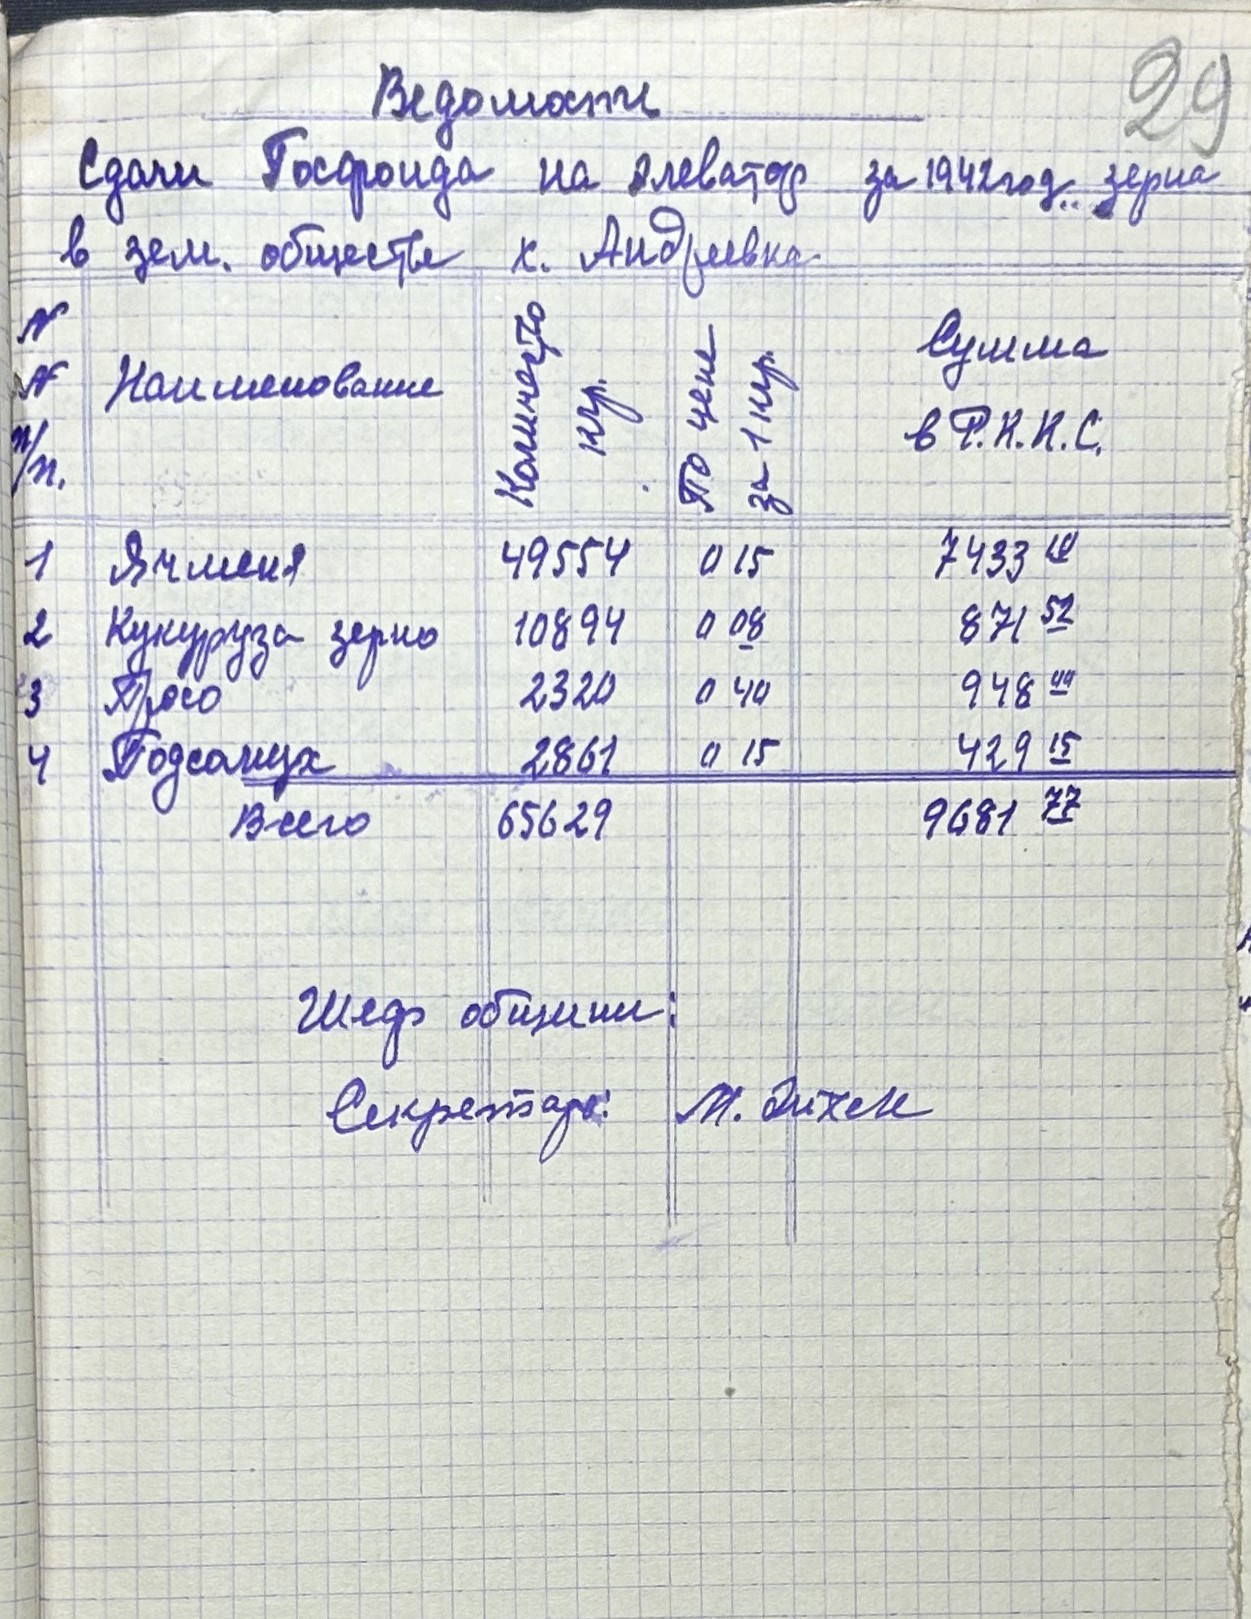 29
Ведомость
Сдачи Госфонда на элеватор за 1942 год. зерна
в зем. обществе х. Андреевка
N N п/п. Наименование Количество кгр. По цене за 1 кгр. Сумма в Р.К.К.С.
1 Ячменя 49554 0 15 7433 10
2 Кукуруза зерно 10894 0 08 871 52
3 Просо 2320 0 40 948 00
4 Подсолнух 2861 0 15 429 15
Всего 65629 9681 77
Шеф общины:
Секретарь: М.